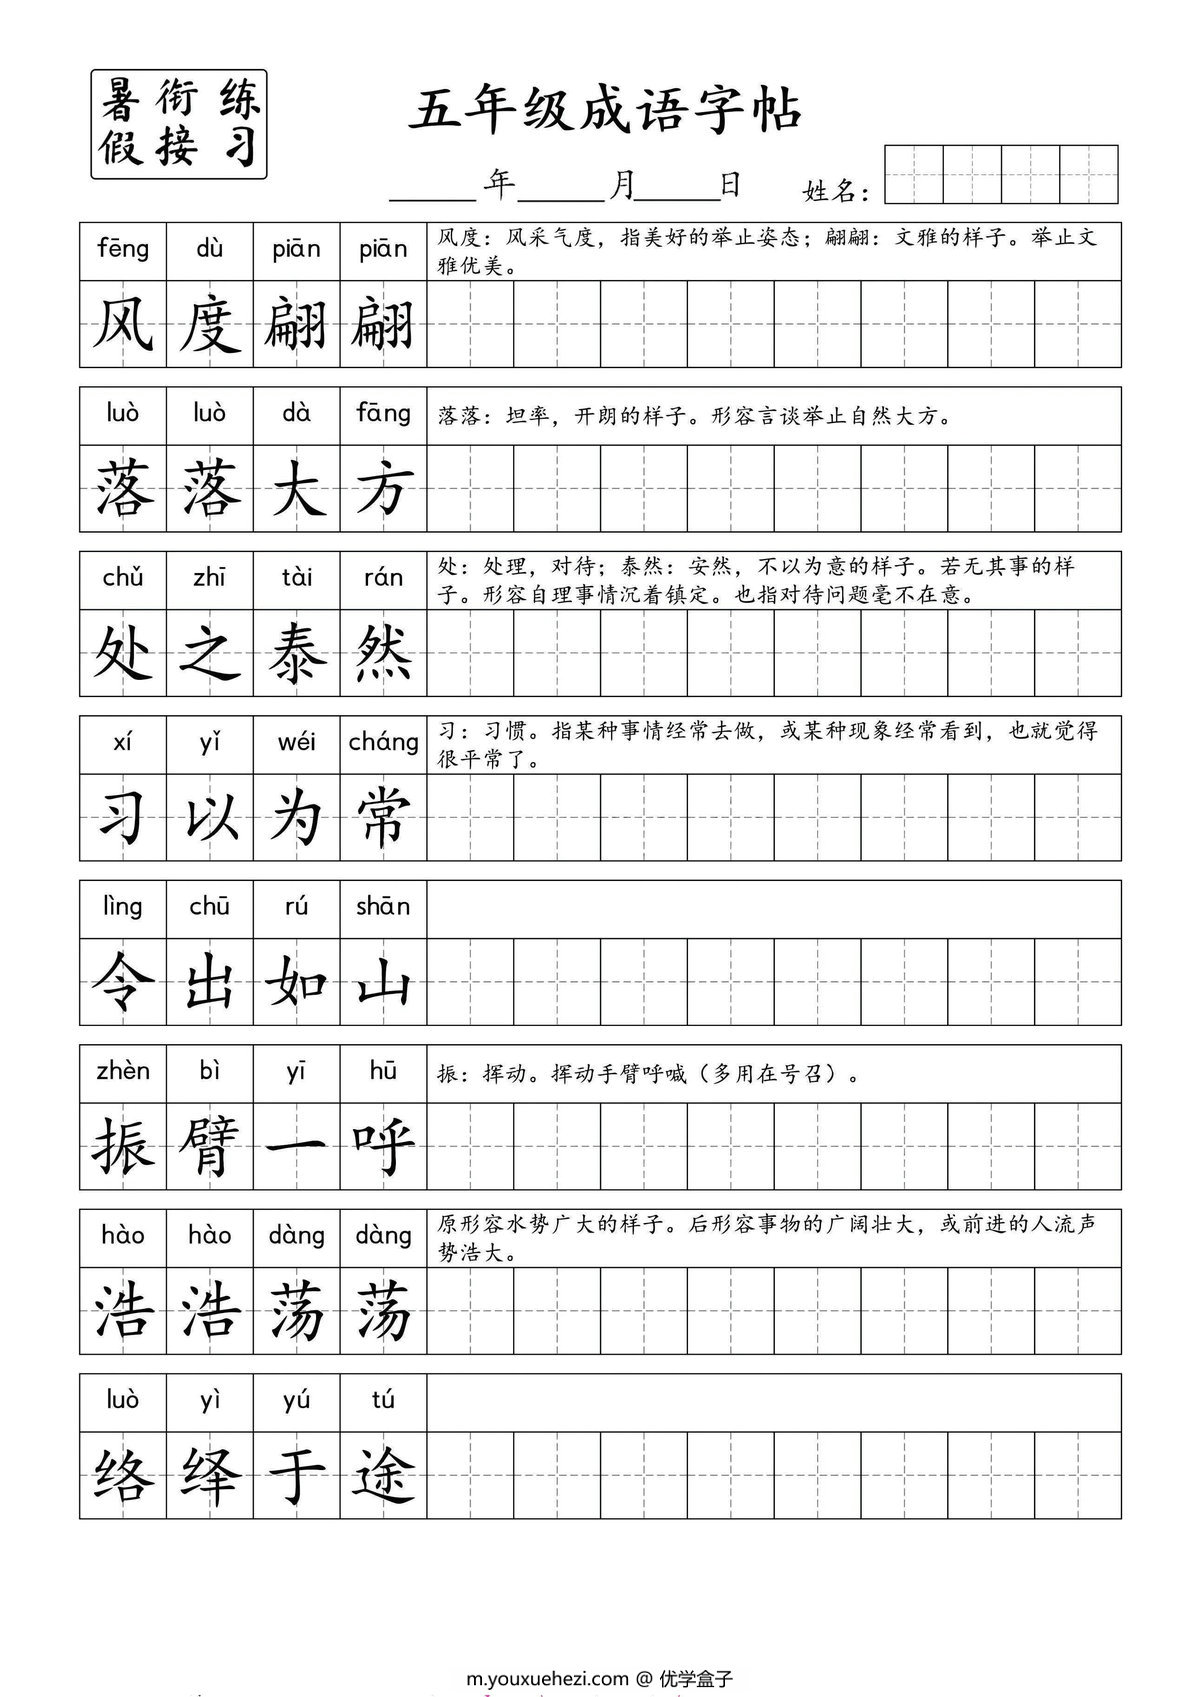 暑 衔 练
假 接 习
五年级成语字帖
年 月 日 姓名：
fēng dù piān piān
风度：风采气度，指美好的举止姿态；翩翩：文雅的样子。举止文
雅优美。
风 度 翩 翩
luò luò dà fāng
落落：坦率，开朗的样子。形容言谈举止自然大方。
落 落 大 方
chǔ zhī tài rán
处：处理，对待；泰然：安然，不以为意的样子。若无其事的样
子。形容自理事情沉着镇定。也指对待问题毫不在意。
处 之 泰 然
xí yǐ wéi cháng
习：习惯。指某种事情经常去做，或某种现象经常看到，也就觉得
很平常了。
习 以 为 常
lìng chū rú shān
令 出 如 山
zhèn bì yī hū
振：挥动。挥动手臂呼喊（多用在号召）。
振 臂 一 呼
hào hào dàng dàng
原形容水势广大的样子。后形容事物的广阔壮大，或前进的人流声
势浩大。
浩 浩 荡 荡
luò yì yú tú
络 绎 于 途
m.youxuehezi.com @ 优学盒子